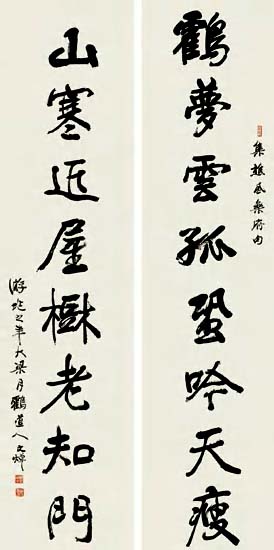 鶴夢雲孤蛩吟天瘦
集樵風樂府句
山寒近屋樹老知門
游兆之年大梁月鶴道人文焯